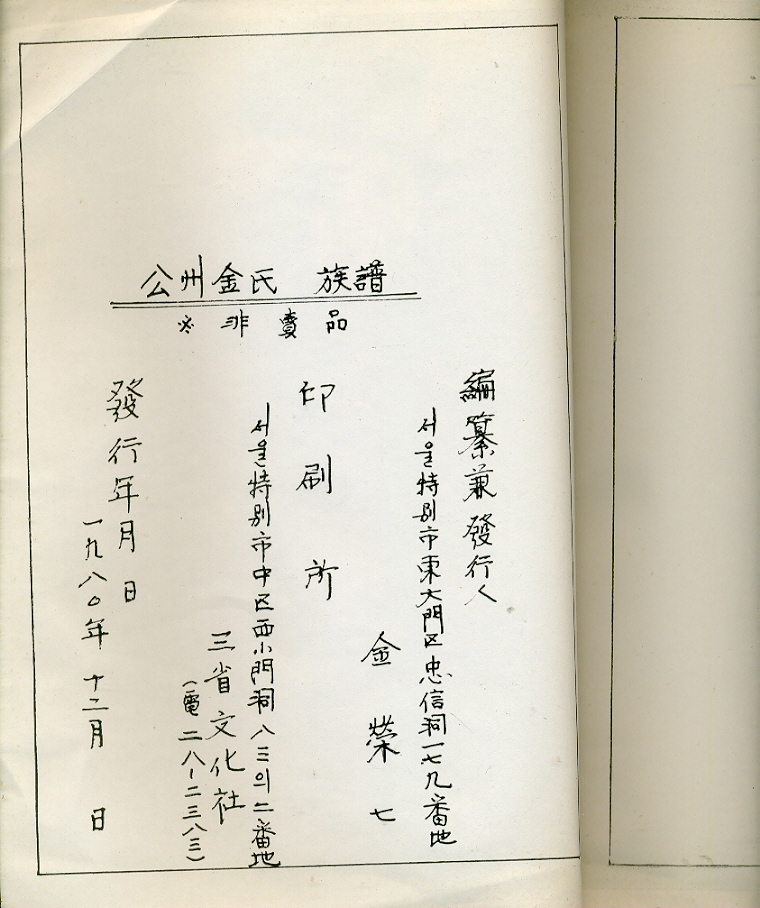 公州金氏 族譜
※ 非賣品
編纂兼發行人
서울特別市東大門区忠信洞一七九番地
金榮七
印刷所
서울特別市中区西小門洞八三의二番地
三省文化社
(電二八-二三八三)
發行年月日
一九八〇年 十二月 日